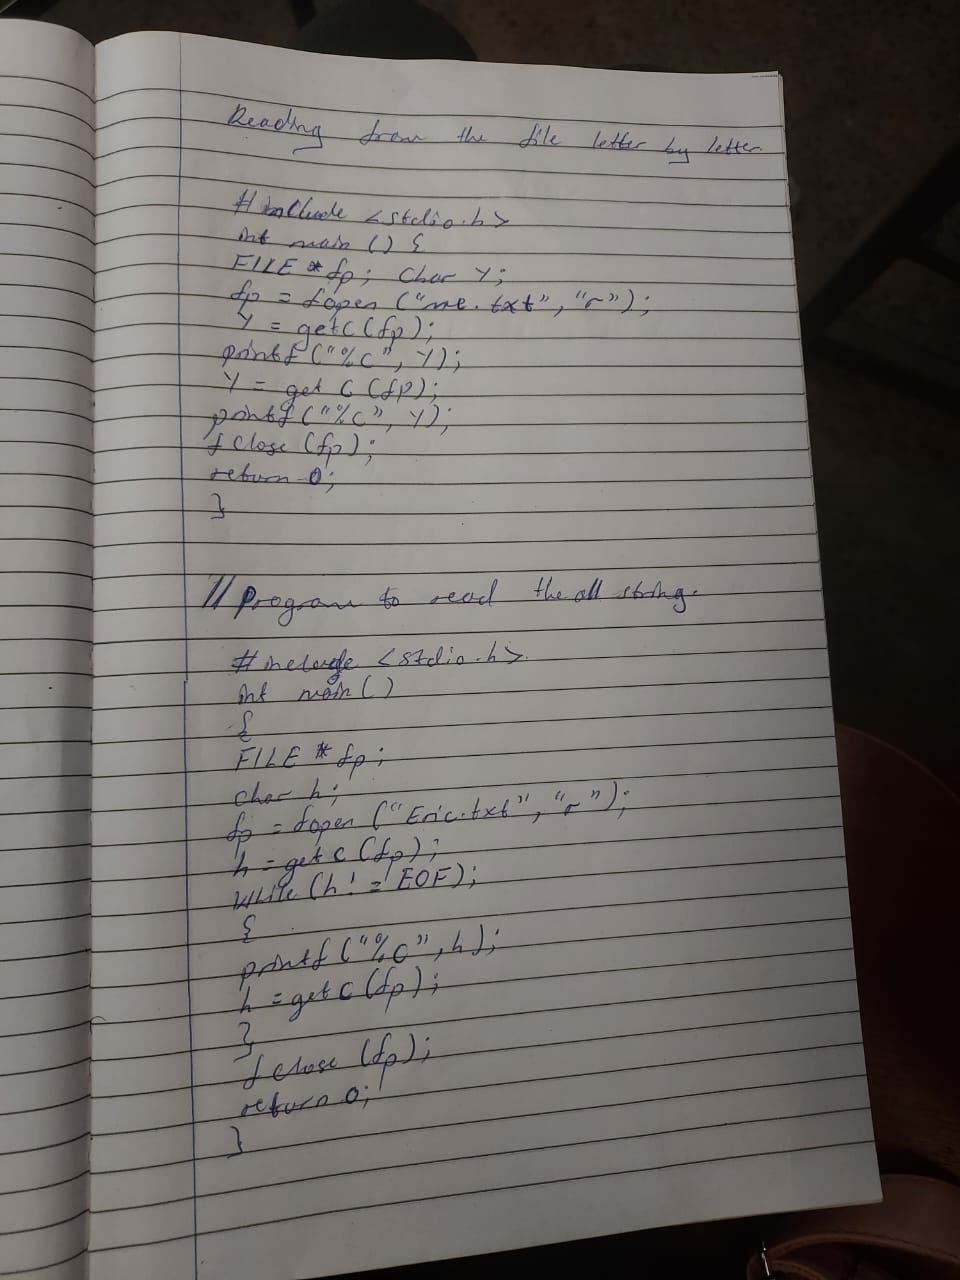 Reading from the file letter by letter
# include <stdio.h>
int main () {
FILE * fp; Char Y;
fp = fopen ("me.txt", "r");
Y = getc (fp);
printf ("%c", Y);
Y = get c (fp);
printf ("%c", Y);
f close (fp);
return 0;
}
// Program to read the all string.
# include <stdio.h>
int main ()
{
FILE * fp;
char h;
fp = fopen ("Eric.txt", "r");
h = get c (fp);
while (h! = EOF);
{
printf ("%c", h);
h = get c (fp);
}
f close (fp);
return 0;
}